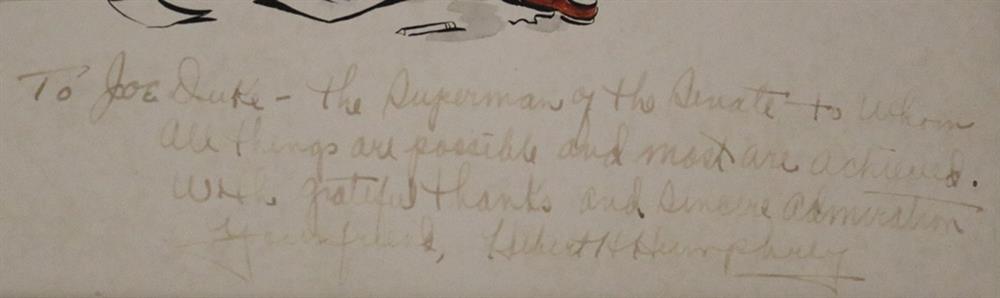 To Joe Duke - the Superman of the Senate - to whom
all things are possible and most are achieved.
With grateful thanks and sincere admiration
Your friend, Hubert H Humphrey